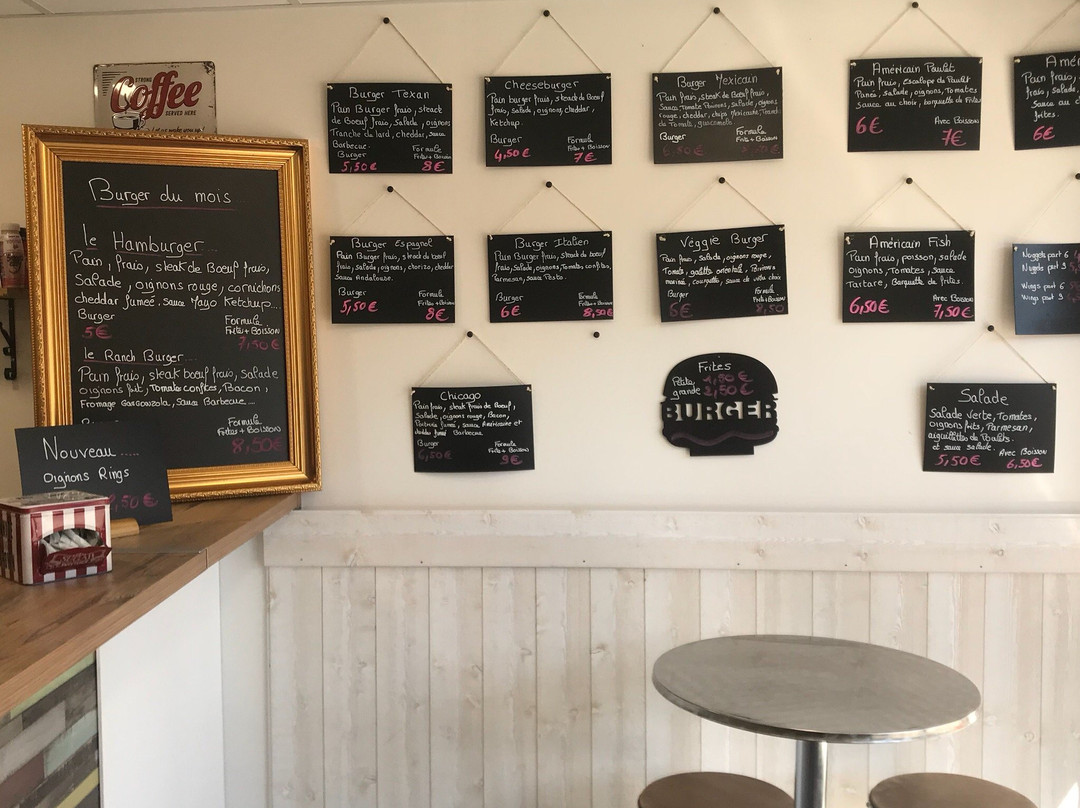 STRONG
Coffee
SERVED HERE
Burger du mois
le Hamburger...
Pain, frais, steak de Boeuf frais,
Salade, oignons rouge, cornichons
cheddar fumeé, sauce Mayo Ketchup...
Burger
5€
Formule
Frites + Boisson
7,50€
le Ranch Burger...
Pain frais, steak boeuf frais, salade
oignons frit, Tomates confites, Bacon,
Fromage Gorgonzola, Sauce Barbecue...
Formule
Frites + Boisson
8,50€
Nouveau.....
Oignons Rings
Burger Texan
Pain Burger frais, steack
de Boeuf frais, Salade, oignons
Tranche de lard, cheddar, sauce
Barbecue.
Burger
5,50€
Formule
Frites + Boisson
8€
Cheeseburger
Pain burger frais, steack de Boeuf
frais, salade, oignons, cheddar,
Ketchup.
Burger
4,50€
Formule
Frites + Boisson
7€
Burger Mexicain
Pain frais, steak de Boeuf frais,
Sauce Tomate, Poivrons, salade, oignons
rouge, cheddar, chips Mexicaine,
de Tomate, guacamole
Burger
Formule
Frites + Boisson
Américain Poulet
Pain frais, Escalope de Poulet
Pané, salade, oignons, Tomates
Sauce au choix, barquette de Frites
6€
Avec Boisson
7€
Amé
Pain frais,
frais, s
sauce au c
frites.
6€
Burger Espagnol
Pain Burger frais, steack de boeuf
frais, salade, oignons, chorizo, cheddar
Sauce Andalouse.
Burger
5,50€
Formule
Frites + Boisson
8€
Burger Italien
Pain Burger frais, steack de boeuf
frais, salade, oignons, Tomates confites,
Parmesan, sauce Pesto.
Burger
6€
Formule
Frites + Boisson
8,50€
Véggie Burger
Pain frais, salade, oignons rouge,
Tomate, galette orientale, Poivrons
mariné, courgette, sauce de votre choix
Burger
6€
Formule
Frites + Boisson
8,50
Américain Fish
Pain frais, poisson, salade
oignons, Tomates, sauce
Tartare, Barquette de frites.
6,50€
Avec Boisson
7,50€
Nuggets part 6
Nuggets part 9
Wings part 6
Wings part 9
Chicago
Pain frais, steak frais de Boeuf,
Salade, oignons rouge, Bacon,
Poitrine fumé, sauce Américaine et
cheddar fumé Barbecue.
Burger
6,50€
Formule
Frites + Boisson
9€
Frites
Petite 1,50€
grande 2,50€
BURGER
Salade
Salade Verte, Tomates,
oignons frits, Parmesan,
aiguillettes de Poulets.
et sauce salade.
5,50€
Avec Boisson
6,50€